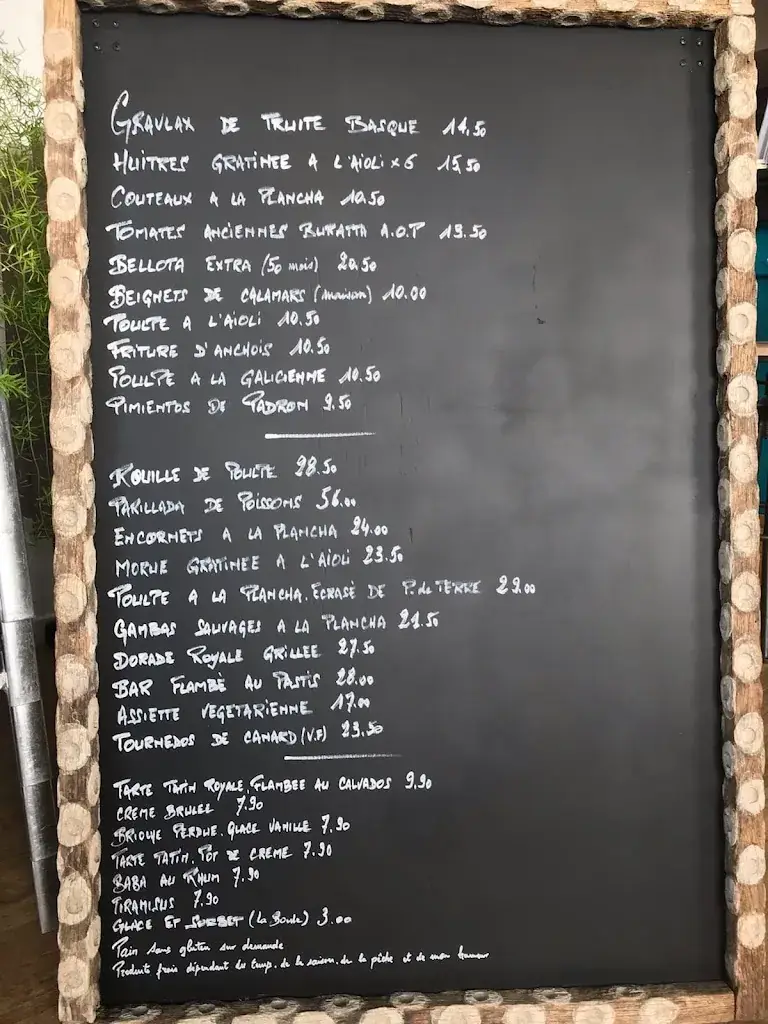 GRAVLAX DE TRUITE BASQUE 14,50
HUITRES GRATINEE A L'AÏOLI x 6 15,50
COUTEAUX A LA PLANCHA 10.50
TOMATES ANCIENNES BURATTA A.O.P 13.50
BELLOTA EXTRA (50 mois) 20.50
BEIGNETS DE CALAMARS (maison) 10.00
POULPE A L'AÏOLI 10.50
FRITURE D'ANCHOIS 10.50
POULPE A LA GALICIENNE 10.50
PIMIENTOS DE PADRON 9.50
ROUILLE DE POULPE 28.50
PARILLADA DE POISSONS 56.00
ENCORNETS A LA PLANCHA 24.00
MORUE GRATINEE A L'AÏOLI 23.50
POULPE A LA PLANCHA, ECRASÉ DE P. de TERRE 29.00
GAMBAS SAUVAGES A LA PLANCHA 21.50
DORADE ROYALE GRILLEE 27.50
BAR FLAMBÈ AU PASTIS 28.00
ASSIETTE VEGETARIENNE 17.00
TOURNEDOS DE CANARD (V.F) 23.50
TARTE TATIN ROYALE, FLAMBEE AU CALVADOS 9,90
CREME BRULEE 7.90
BRIOCHE PERDUE, GLACE VANILLE 7.90
TARTE TATIN, POT DE CREME 7.90
BABA AU RHUM 7.90
TIRAMISUS 7.90
GLACE ET SORBET (La Boule) 3.00
Pain sans gluten sur demande
Produits frais dépendent du temps, de la saison, de la pêche et de mon humeur